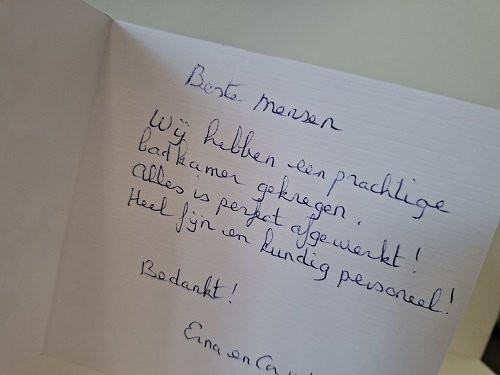 Beste mensen
Wij hebben een prachtige
badkamer gekregen.
Alles is perfect afgewerkt!
Heel fijn en kundig personeel!
Bedankt!
Erna en